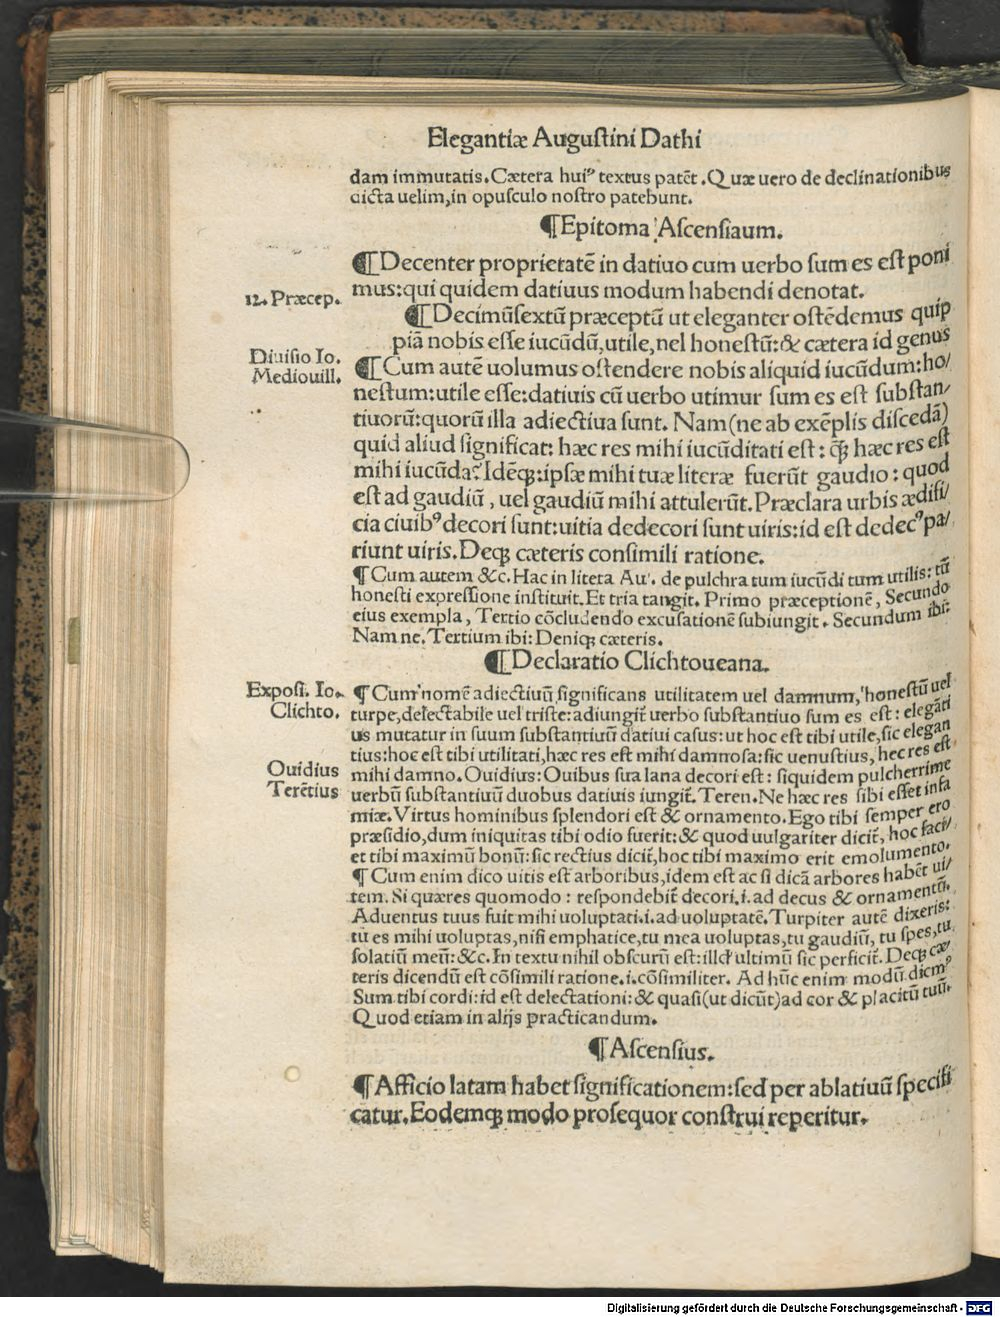 Elegantiæ Augustini Dathi
dam immutatis. Cætera huiꝰ textus patēt. Quæ uero de declinationibus
dicta uelim, in opusculo nostro patebunt.
¶Epitoma Ascensiaum.
¶Decenter proprietatē in datiuo cum uerbo sum es est poni
mus: qui quidem datiuus modum habendi denotat.
12. Præcep.
¶Decimūsextū præceptū ut eleganter ostēdemus quip
piā nobis esse iucūdū, utile, uel honestū: & cætera id genus
Diuisio Io.
Mediouill.
¶Cum autē uolumus ostendere nobis aliquid iucūdum: ho/
nestum: utile esse: datiuis cū uerbo utimur sum es est substan/
tiuorū: quorū illa adiectiua sunt. Nam (ne ab exēplis discedā)
quid aliud significat: hæc res mihi iucūditati est: ꝙ̄ hæc res est
mihi iucūda? Idēꝗ: ipsæ mihi tuæ literæ fuerūt gaudio: quod
est ad gaudiū, uel gaudiū mihi attulerūt. Præclara urbis ædifi/
cia ciuibꝰ decori sunt: uitia dedecori sunt uiris: id est dedecꝰ pa/
riunt uiris. Deqꝫ cæteris consimili ratione.
¶Cum autem &c. Hac in litera Au. de pulchra tum iucūdi tum utilis: tū
honesti expressione instituit. Et tria tangit. Primo præceptionē, Secundo
eius exempla, Tertio cōcludendo excusationē subiungit. Secundum ibi:
Nam ne. Tertium ibi: Deniqꝫ cæteris.
¶Declaratio Clichtoueana.
Exposi. Io.
Clichto.
¶Cum nomē adiectiuū significans utilitatem uel damnum, honestū uel
turpe, delectabile uel triste: adiungit̄ uerbo substantiuo sum es est: elegāti
us mutatur in suum substantiuū datiui casus: ut hoc est tibi utile, sic elegan
tius: hoc est tibi utilitati, hæc res est mihi damnosa: sic uenustius, hec res est
Ouidius
Terētius
mihi damno. Ouidius: Ouibus sua lana decori est: siquidem pulcherrime
uerbū substantiuū duobus datiuis iungit̄. Teren. Ne hæc res sibi esset infa
miæ. Virtus hominibus splendori est & ornamento. Ego tibi semper ero
præsidio, dum iniquitas tibi odio fuerit: & quod uulgariter dicit̄, hoc faci/
et tibi maximū bonū: sic rectius dicit̄, hoc tibi maximo erit emolumento.
¶Cum enim dico uitis est arboribus, idem est ac si dicā arbores habēt ui/
tem. Si quæres quomodo: respondebit̄ decori .i. ad decus & ornamentū.
Aduentus tuus fuit mihi uoluptati .i. ad uoluptatē. Turpiter autē dixeris:
tu es mihi uoluptas, nisi emphatice, tu mea uoluptas, tu gaudiū, tu spes, tu
solatiū meū: &c. In textu nihil obscurū est: illd' ultimū sic perficit̄. Deqꝫ cæ/
teris dicendū est cōsimili ratione .i. cōsimiliter. Ad hūc enim modū dicimꝰ
Sum tibi cordi: id est delectationi: & quasi (ut dicūt) ad cor & placitū tuū.
Quod etiam in alijs practicandum.
¶Ascensius.
¶Afficio latam habet significationem: sed per ablatiuū specifi
catur. Eodemqꝫ modo prosequor construi reperitur.
Digitalisierung gefördert durch die Deutsche Forschungsgemeinschaft - DFG